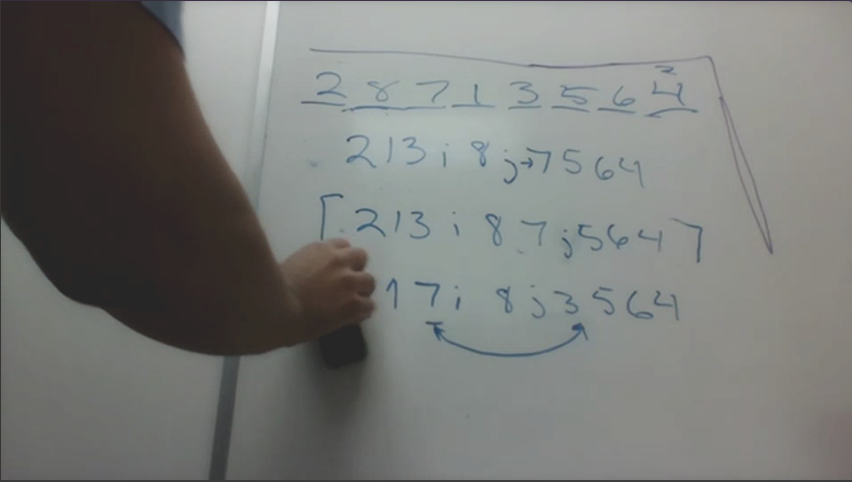 2 8 7 1 3 5 6 4
213 i 8 j→7564
[213 i 87 j 564]
17 i 8 j 3564